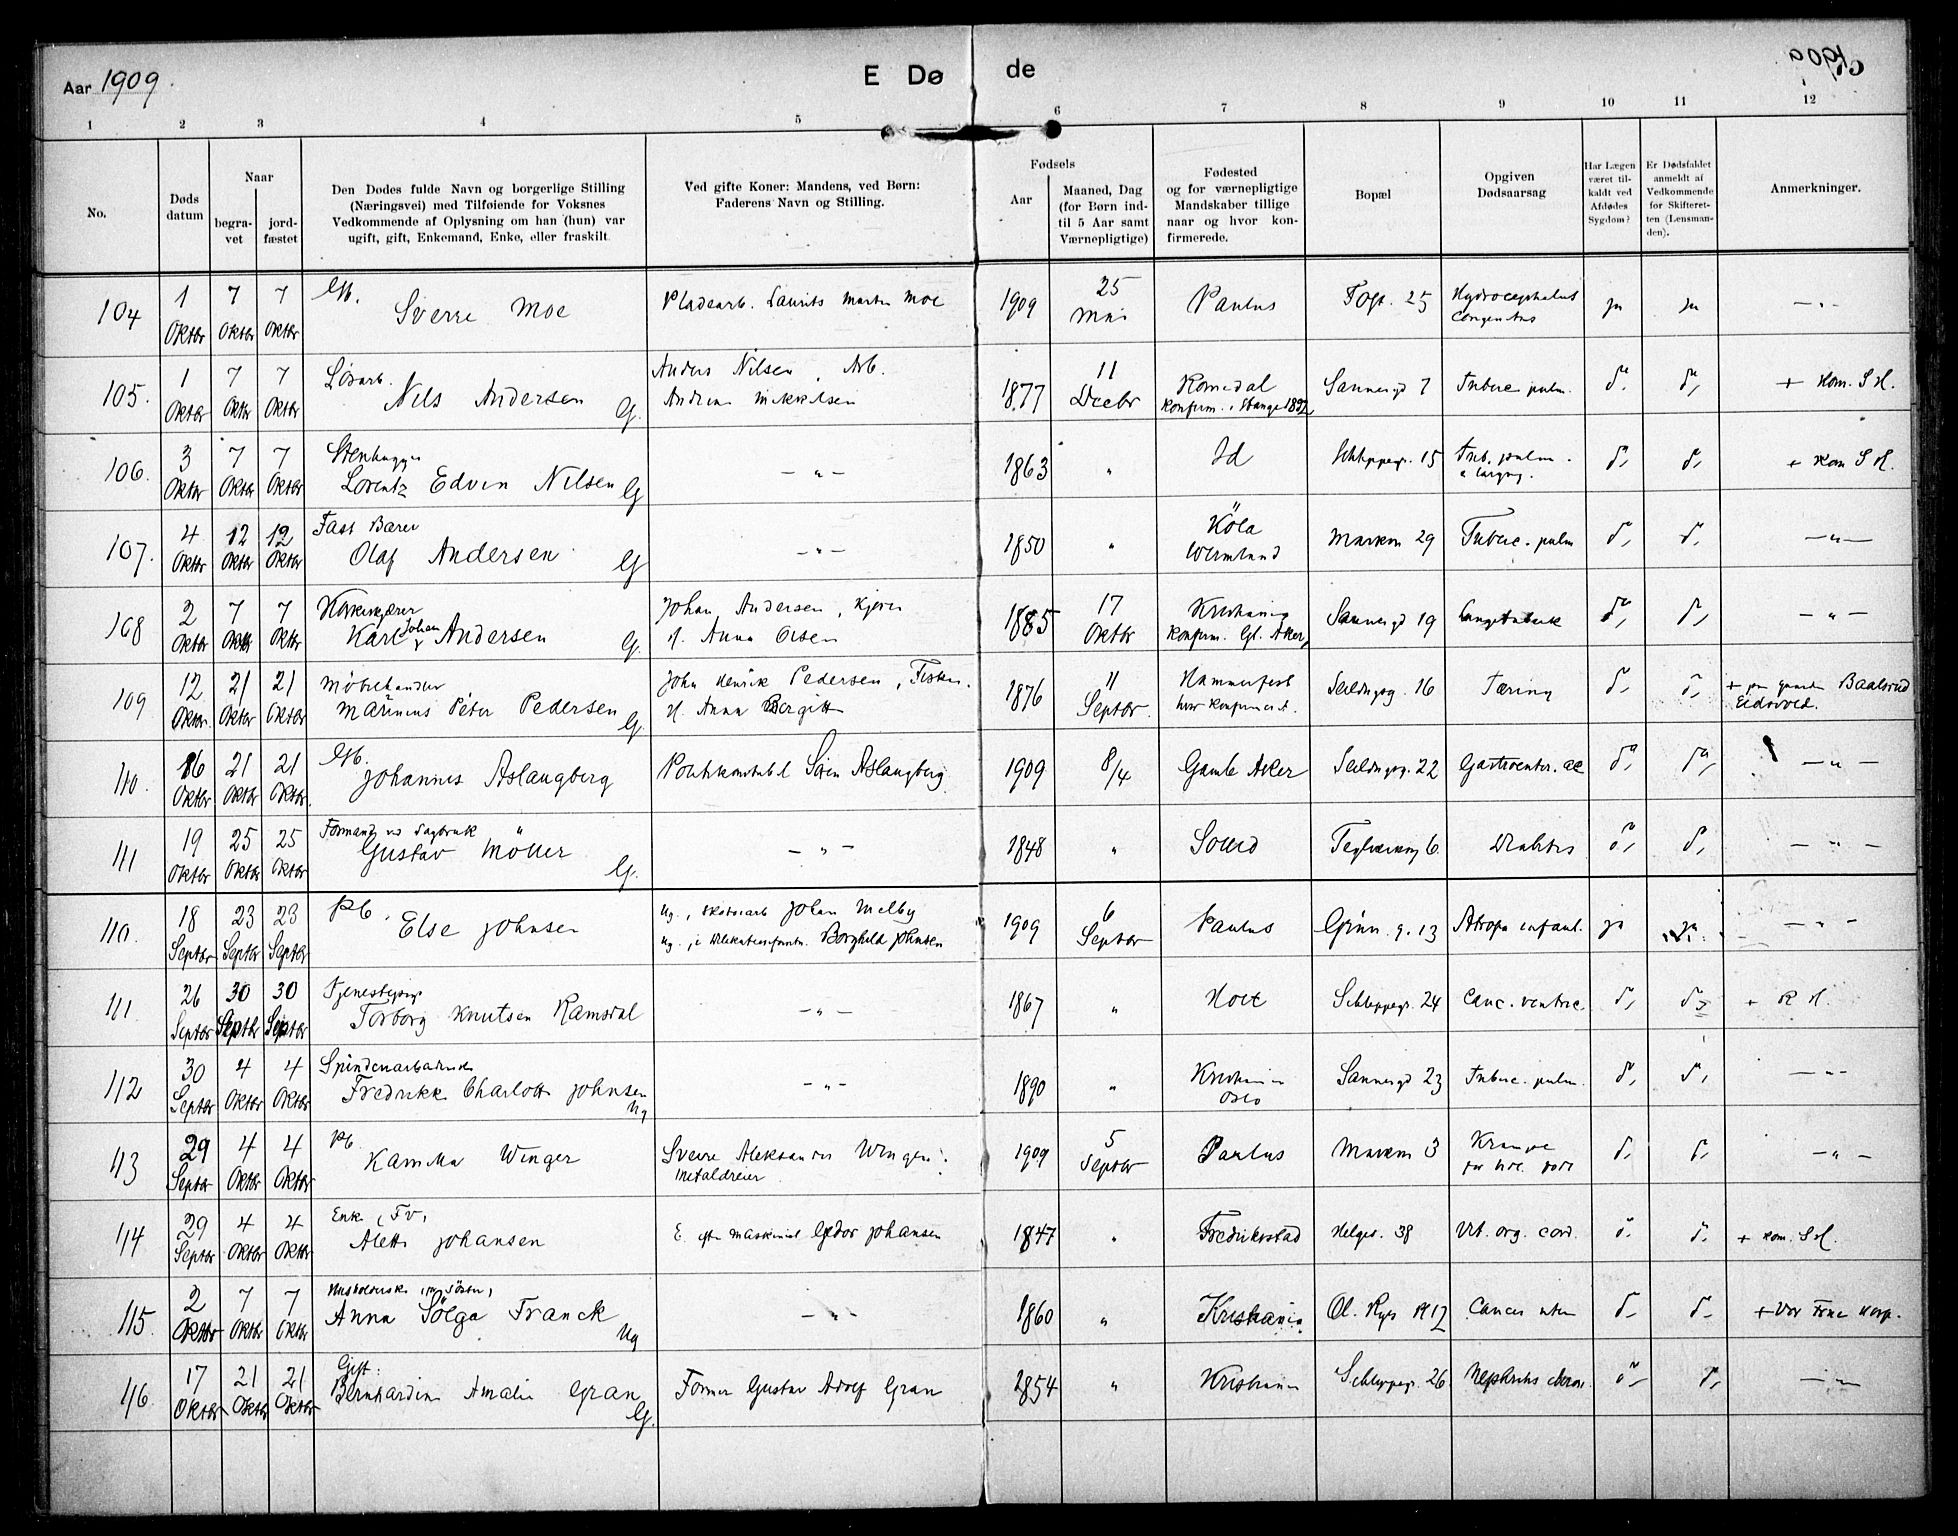 Aar 1909.
E Døde
1909
1 2 3 4 5 6 7 8 9 10 11 12
No.
Døds datum
Naar
begravet
jordfæstet
Den Dødes fulde Navn og borgerlige Stilling
(Næringsvei) med Tilføiende for Voksnes
Vedkommende af Oplysning om han (hun) var
ugift, gift, Enkemand, Enke, eller fraskilt.
Ved gifte Koner: Mandens, ved Børn:
Faderens Navn og Stilling.
Fødsels
Aar
Maaned, Dag
(for Børn ind-
til 5 Aar samt
Værnepligtige)
Fødested
og for værnepligtige
Mandskaber tillige
naar og hvor kon-
firmerede.
Bopæl
Opgiven
Dødsaarsag
Har Lægen
været til-
kaldt ved
Afdødes
Sygdom?
Er Dødsfaldet
anmeldt af
Vedkommende
for Skifteret-
ten (Lensman-
den).
Anmerkninger.
104 1 Oktbr 7 Oktbr 7 Oktbr Sverre Moe Pladearb. Laurits Martin Moe 1909 25 Mai Paulus Fogt. 25 Hydrocephalus congenitus ja ja — " —
105. 1 Oktbr 7 Oktbr 7 Oktbr Nils Andersen G. Anders Nilsen, Arb. Andrine Mikkelsen 1877 11 Decbr Romedal konfirm. i Stange 1892 Sannergd 7 Tuberc pulm. d. d. + Kom. S H.
106. 3 Oktbr 7 Oktbr 7 Oktbr Stenhugger Lorentz Edvin Nilsen G — " — 1863 " Id Schleppegr. 15 Tub. pulm. d. d. + Kom S H.
107. 4 Oktbr 12 Oktbr 12 Oktbr Fast Bærer Olaf Andersen G — " — 1850 " Köla Wermland Markvn 29 Tuberc. pulm d. d. — " —
108 2 Oktbr 7 Oktbr 7 Oktbr Karl Johan Andersen G. Johan Andersen, Kjører H. Anna Olsen 1885 17 Oktbr Kristiania konfirm. Gl. Aker, Sannergd 19 Lungetuberk d. d. — " —
109 12 Oktbr. 21 Oktbr 21 Oktbr Møbelhandler Marinius Peter Pedersen G. John Henrik Pedersen, Fisker. H. Anna Bergitte 1876 11 Septbr. Hammerfest hvor konfirmeret. Seildugsg. 16 Tæring d. d. + paa Gaarden Baalsrud Eidsvold.
110. 16 Oktbr 21 Oktbr 21 Oktbr. Johannes Aslaugberg Politikonstabel Sören Aslaugberg 1909 8/4 Gamle Aker Seildugsg. 22 Gastroenter. ac d. d. — " —
111 19 Oktbr 25 Oktbr 25 Oktbr Formand ved Sagbruk Gustav Möller G. — " — 1848 " Teglverksg 6 Diabetes d. d. — " —
110. 18 Septbr 23 Septbr 23 Septbr Pb. Else Johnsen Ug., Skotøiarb Johan Melby Ug. Borghild Johnsen 1909 6 Septbr Paulus Grün. g. 13 Atrofia infant. ja ja — " —
111 26 Septbr 30 Septbr 30 Septbr Tjenestepige Torborg Knutsen Ramsdal — " — 1867 " Holt Schleppegr. 24 Canc. ventric. d. d. + R H.
112 30 Septbr 4 Oktbr 4 Oktbr Spinderiarbeiderske Fredrikke Charlotte Johnsen Ug — " — 1890 " Kristiania Oslo Sannergd 23 Tuberc. pulm. d. d. — " —
113 29 Septbr 4 Oktbr 4 Oktbr Pb Kamilla Winger Sverre Aleksander Winger. Metaldreier 1909 5 Septbr Paulus Markvn 3 Krampe d. d. — " —
114 29 Septbr 4 Oktbr 4 Oktbr Enke, Fv, Alette Johansen E. efter Maskinist Johansen 1847 " Fredrikstad Helges. 38 Vit. org. cord. d. d. + Kom. S H.
115. 2 Oktbr 7 Oktbr 7 Oktbr Anna Sölga Franck Ug — " — 1860 " Kristiania Ol. Ryes Pl 17 Cancer uteri d. d. + Vor Frue Hosp.
116. 17 Oktbr 21 Oktbr 21 Oktbr Gift. Bernhardine Amalie Gran G. Former Gustav Adolf Gran 1854 " Kristiania Schleppegr. 26 Nephritis chron. d. d. — " —